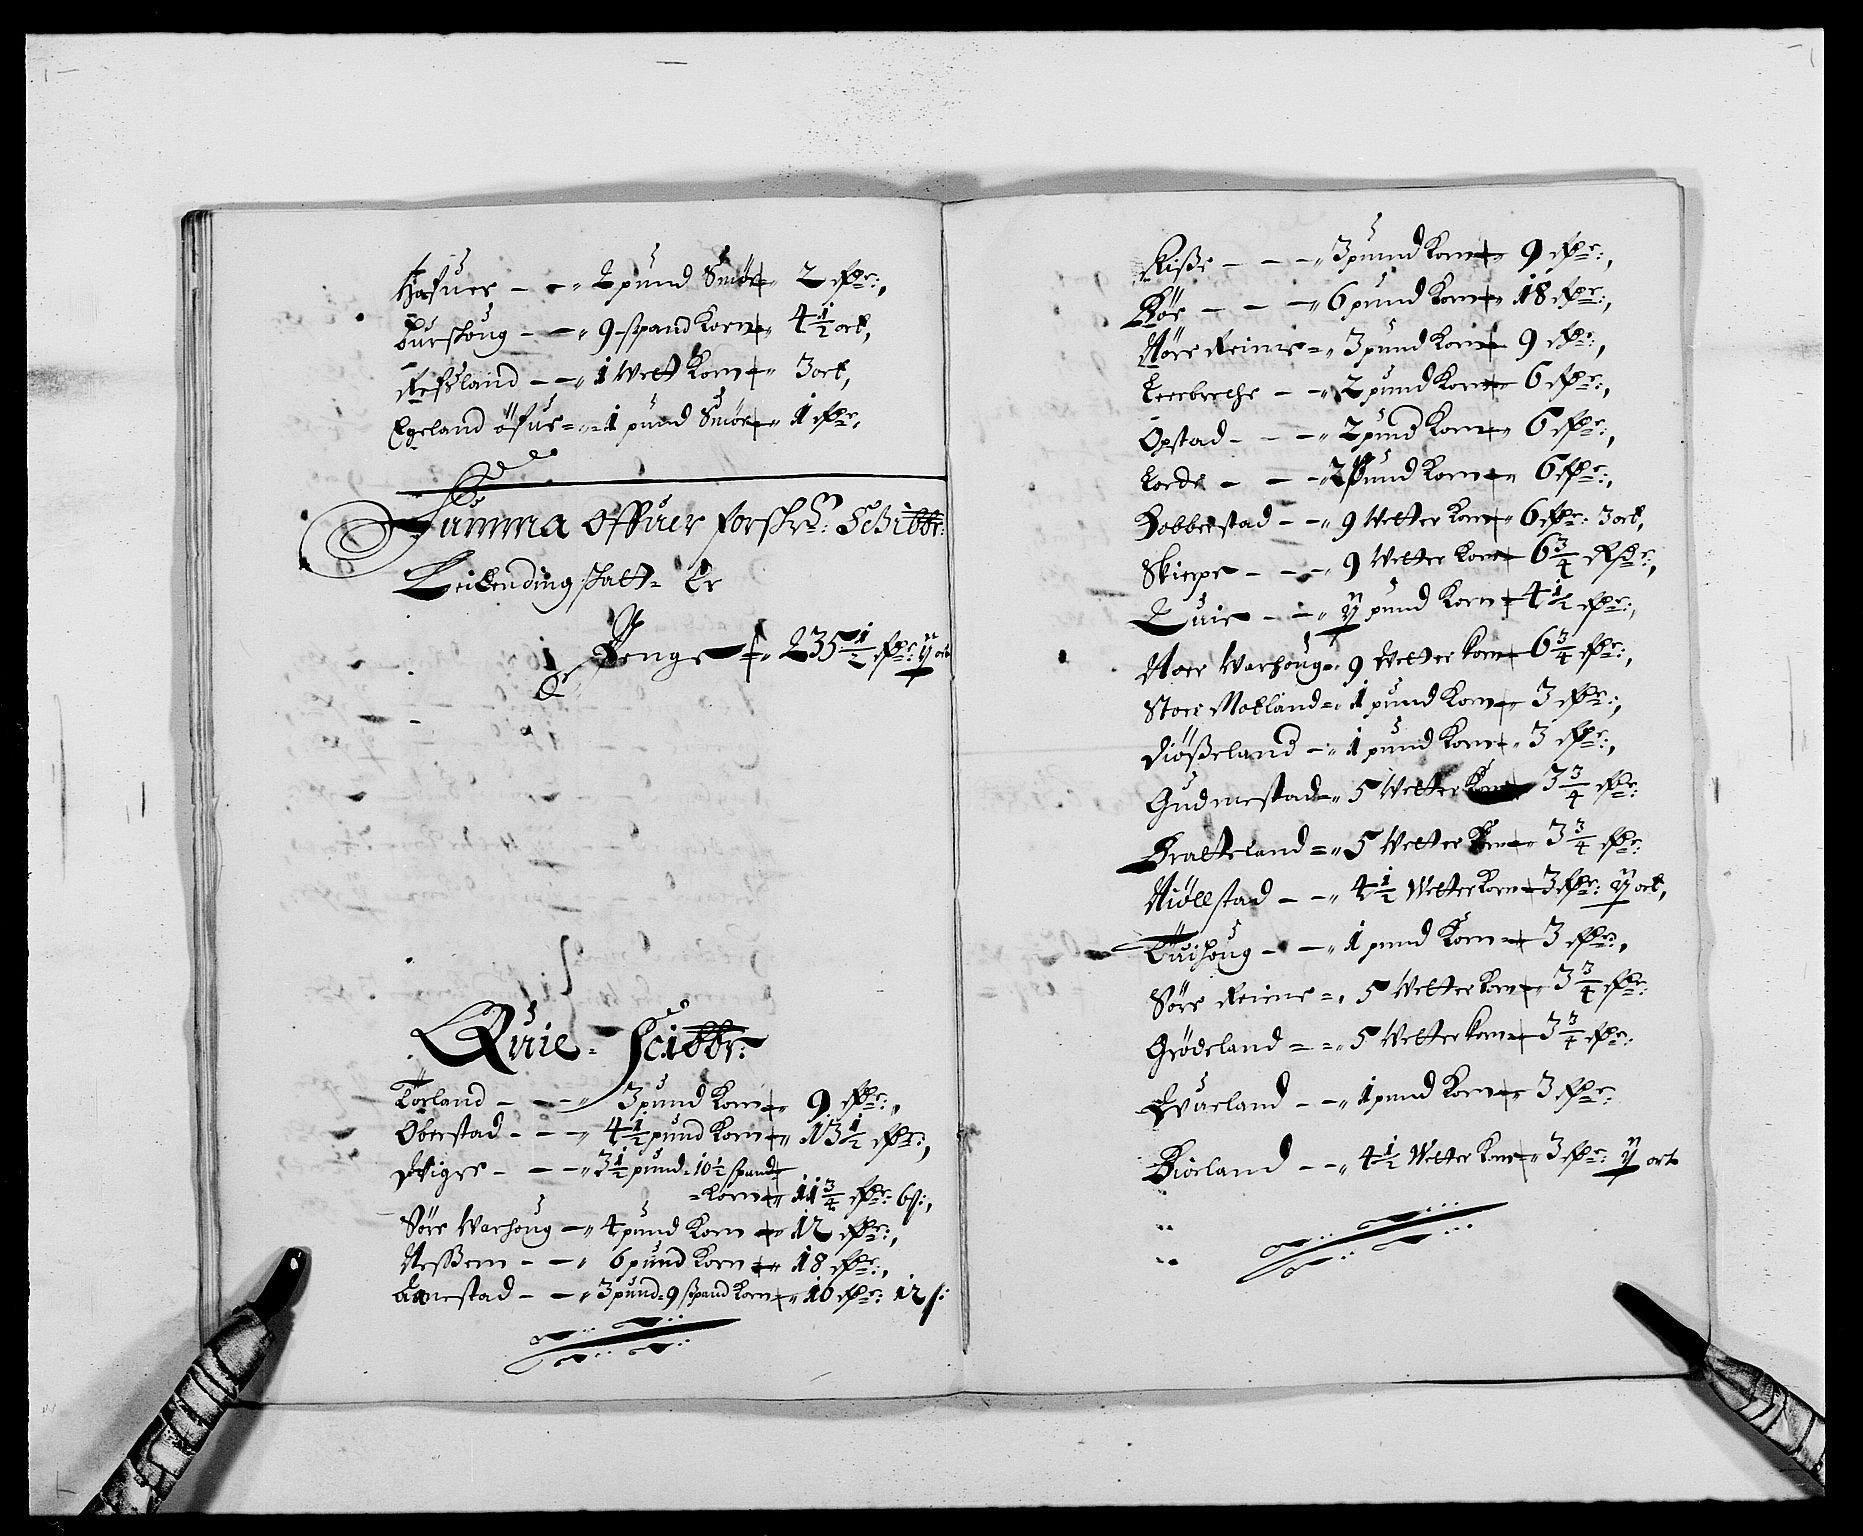 Hafuer - - 2 pund Smør 2 rdr:,
Burhoug - - 9 spand Korn 4 1/2 ort,
Refsland - - 1 Wett Korn 3 ort,
Egeland øfue = 1 pund Smør 1 rdr,
Summa Offuer forskr: Schibbr:
Leilending skatt Er
Penge 235 1/2 rdr: ÿ ort
Quie Scibbr:
Torland - - 3 pund Korn 9 rdr:,
Oberstad - - 4 1/2 pund Korn 13 1/2 rdr:,
Duigre - - 3 1/2 pund 10 1/2 spand
Korn 11 3/4 rdr: 6 s:,
Søre Warhoug - 4 pund Korn 12 rdr:,
Nessem - - 6 pund Korn 18 rdr:,
Anestad - - 3 pund 9 spand Korn 10 rdr: 12 s:
Risse - - 3 pund Korn 9 rdr:,
Bøe - - 6 pund Korn 18 rdr:,
Nøre Reime 3 pund Korn 9 rdr:,
Leerbreche - - 2 pund Korn 6 rdr:,
Opstad - - 2 pund Korn 6 rdr:,
Lode - - 2 pund Korn 6 rdr:,
Hobberstad - - 9 Wetter Korn 6 rdr: 3 ort,
Skierpe - - 9 Wetter Korn 6 3/4 rdr:,
Quie - - ÿ pund Korn 4 1/2 rdr:,
Noer Warhoug 9 Wetter Korn 6 3/4 rdr:,
Store Motland 1 pund Korn 3 rdr:,
Diøsseland - 1 pund Korn 3 rdr:,
Gudmestad 5 Wetter Korn 3 3/4 rdr:
Bratteland 5 Wetter Korn 3 3/4 rdr:
Niøllstad - - 4 1/2 Wetter Korn 3 rdr: ÿ ort,
Tuihoug - - 1 pund Korn 3 rdr:,
Søre Reime 5 Wetter Korn 3 3/4 rdr:
Grødeland 5 Wetter Korn 3 3/4 rdr:
Dualand - - 1 pund Korn 3 rdr:
Biorland - - 4 1/2 Wetter Korn 3 rdr: ÿ ort